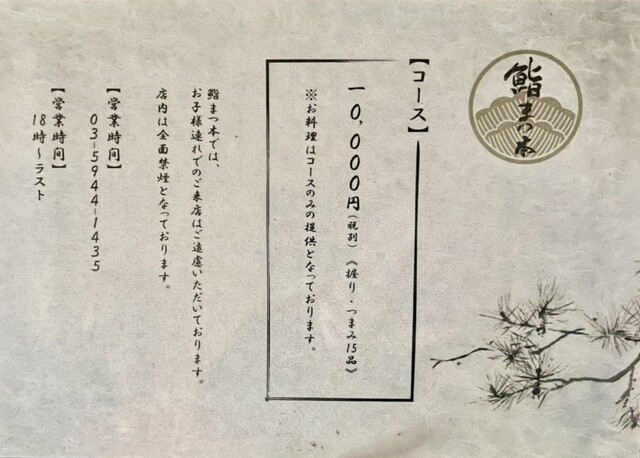 鮨まつ本
【コース】
一0,000円(税別)《握り・つまみ15品》
※お料理はコースのみの提供となっております。
鮨まつ本では、
お子様連れでのご来店はご遠慮いただいております。
店内は全面禁煙となっております。
【営業時間】
03-5944-1435
【営業時間】
18時~ラスト